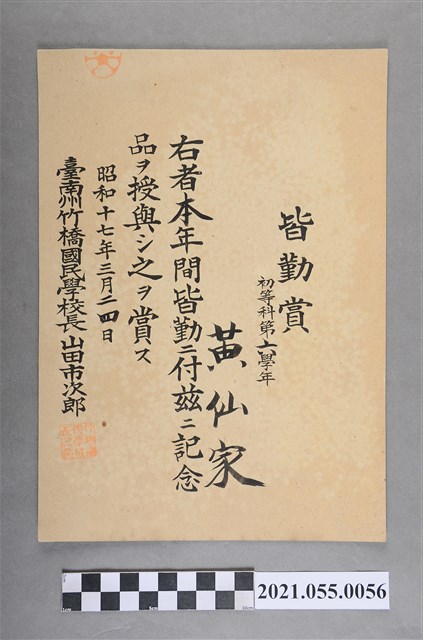 皆勤賞
初等科第六學年
黃仙家
右者本年間皆勤ニ付茲ニ記念
品ヲ授與シ之ヲ賞ス
昭和十七年三月二四日
臺南州竹橋國民學校長 山田市次郎
2021.055.0056